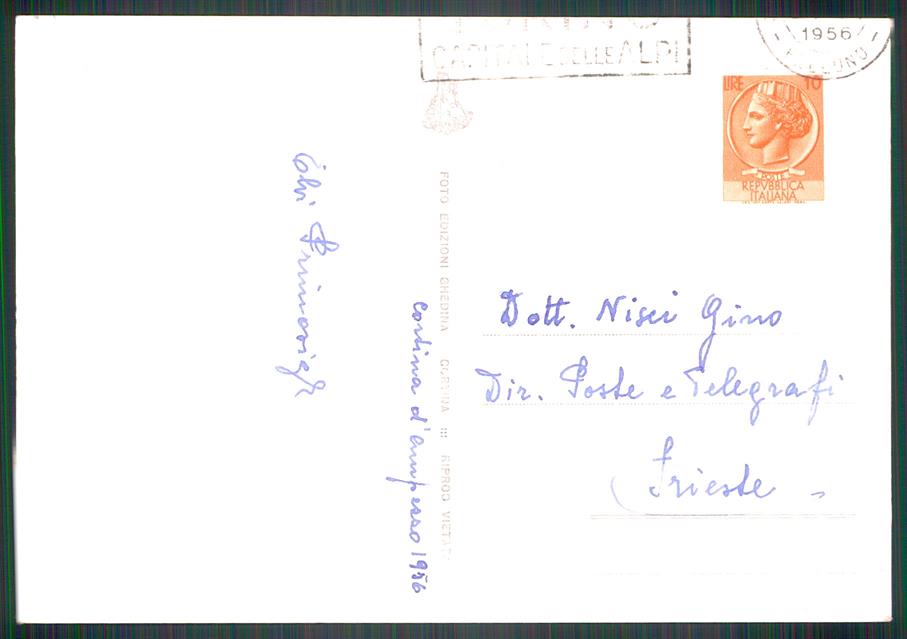 CAPITALE DELLE ALPI
1956
LIRE 10
POSTE
REPVBBLICA
ITALIANA
FOTO EDIZIONI GHEDINA CORTINA RIPROD VIETATA
Cortina d'Ampezzo 1956
Dott. Nisci Gino
Dir. Poste e Telegrafi
Trieste